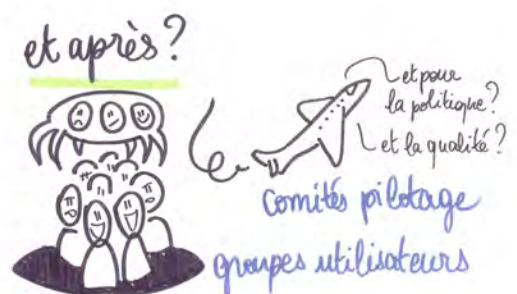 et après?
et pour
la politique?
et la qualité?
Comités pilotage
groupes utilisateurs